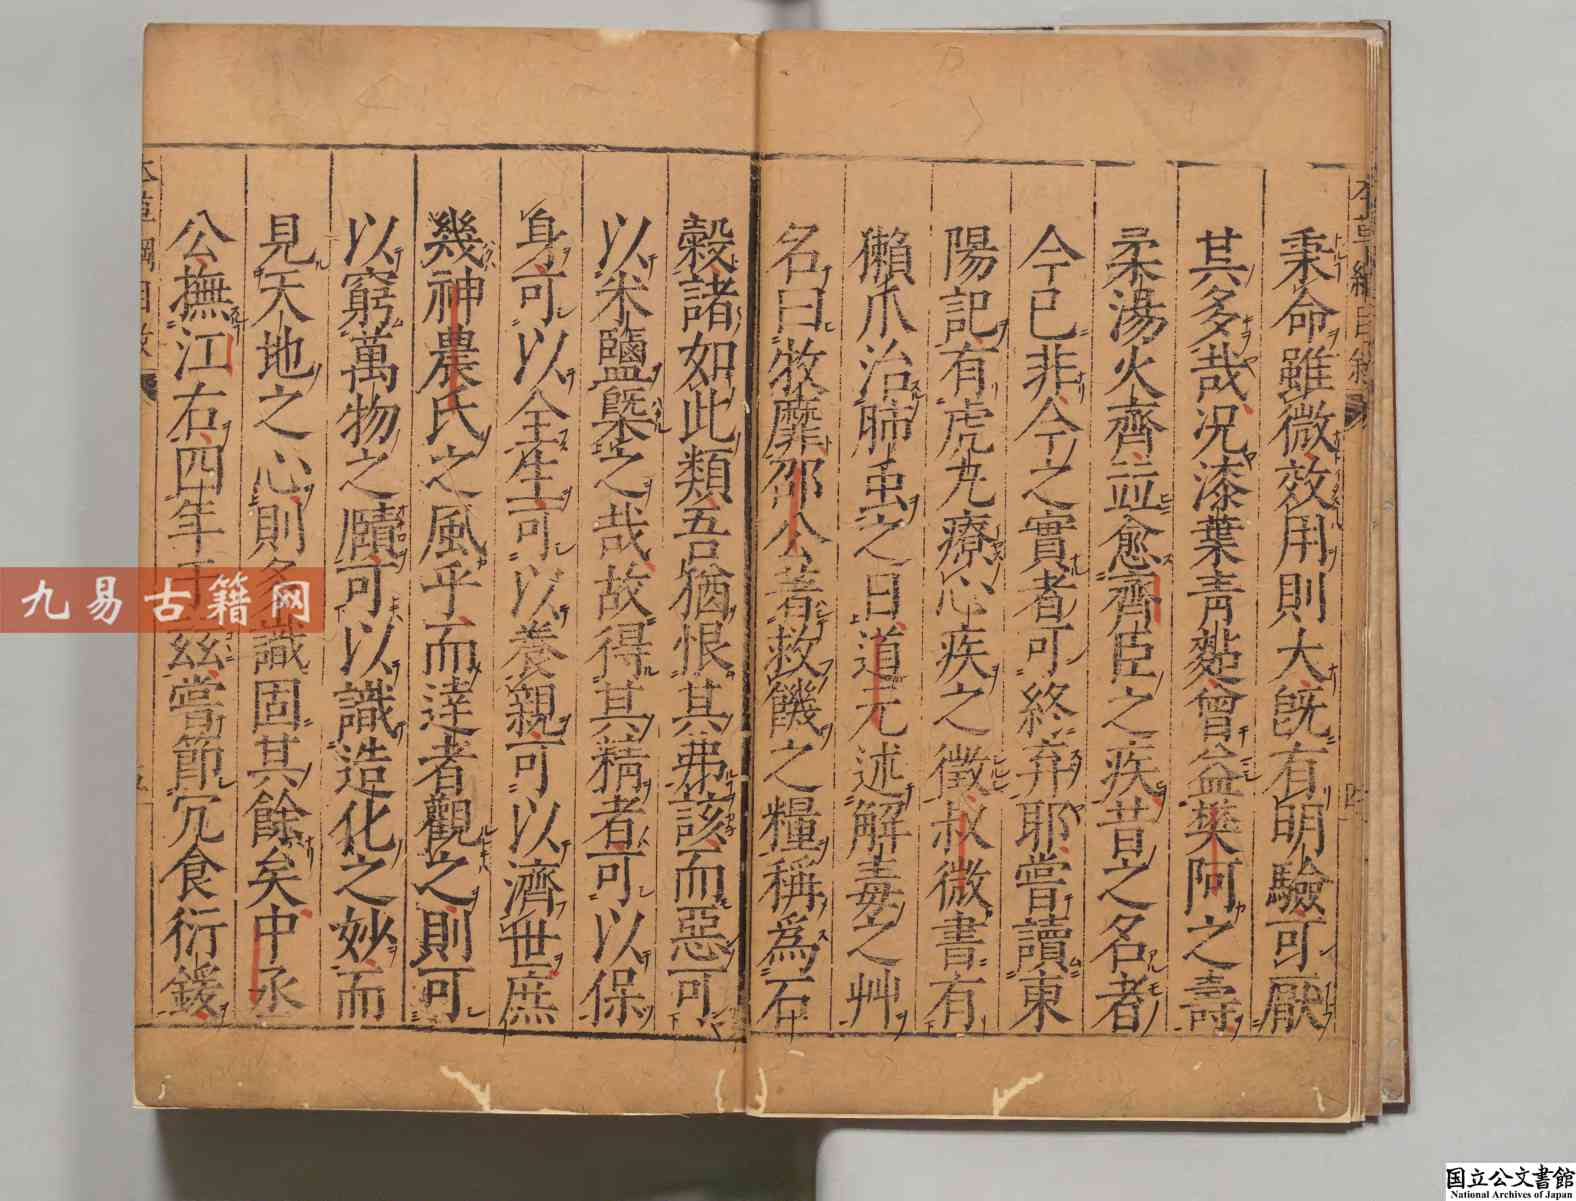 秉命雖微效用則大既有明驗可厭
其多哉況漆葉青䴴曾益樊阿之壽
柔湯火齊並愈齊臣之疾昔之名者
今已非今之實者可終弃耶嘗讀東
陽記有虎丸療心疾之徵叔微書有
獺爪治肺䖝之曰道元述解毒之艸
名曰牧靡邵公著救饑之糧稱爲石
穀諸如此類吾猶恨其弗該而惡可
以米鹽槩之哉故得其精者可以保
身可以全生可以養親可以濟世庶
幾神農氏之風乎而達者觀之則可
以窮萬物之賾可以識造化之妙而
見天地之心則多識固其餘矣中丞
公撫江右四年于茲嘗節冗食衍鍰
九易古籍网
国立公文書館
National Archives of Japan